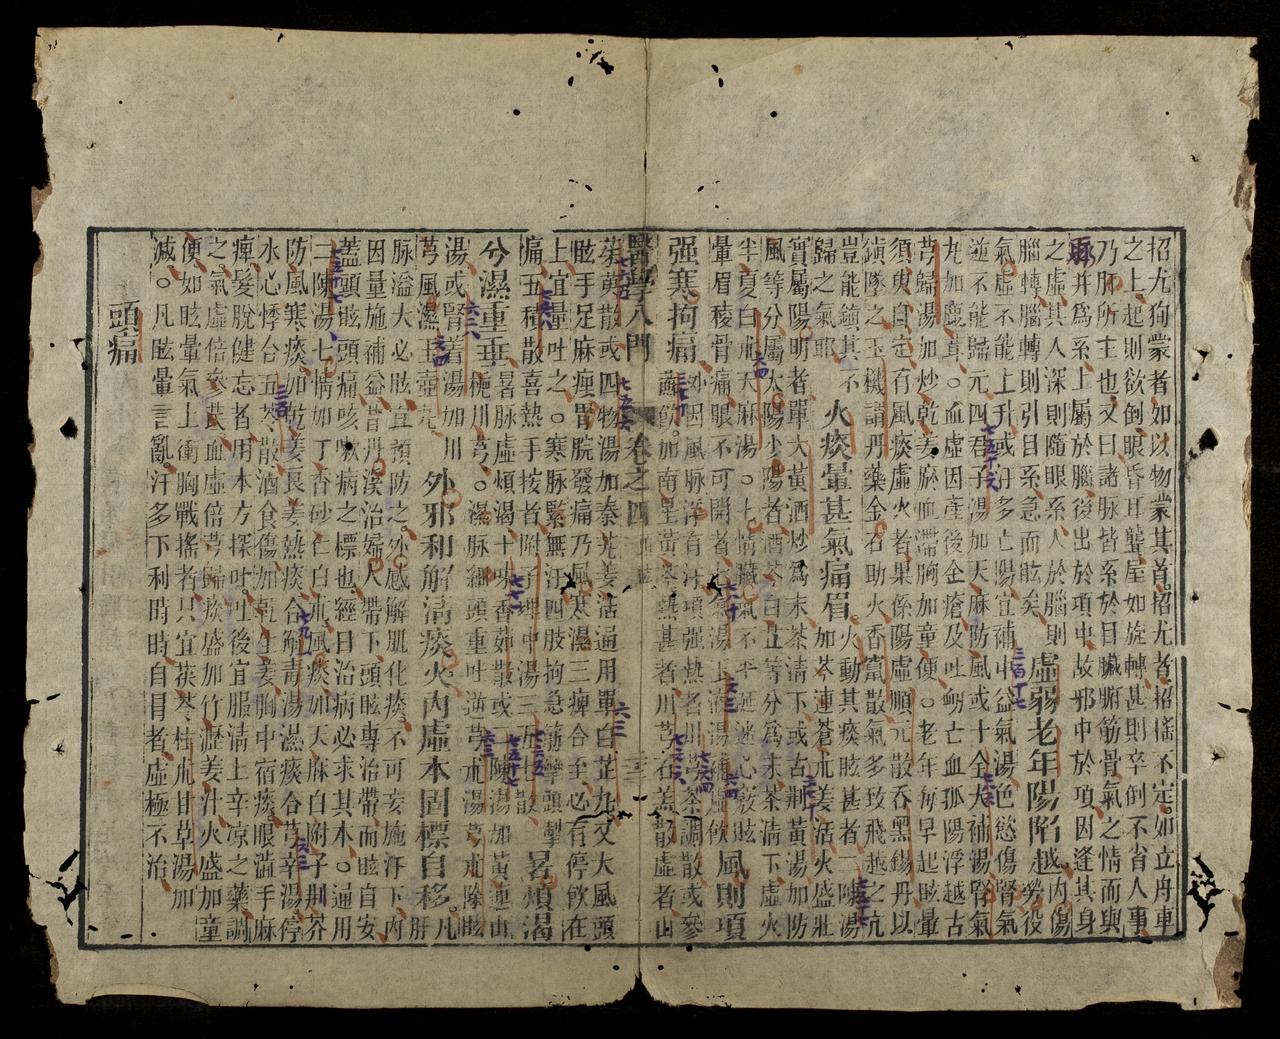 招尤狗蒙者如以物蒙其首招尤者招搖不定如立舟車
之上起則欲倒眼昏耳聾屋如旋轉甚則卒倒不省人事
乃肝所主也又曰諸脉皆系於目臟腑筋骨氣之情而與
脉并爲系上屬於腦後出於項中故邪中於項因逢其身
之虛其人深則隨眼系人於腦則
腦轉腦轉則引目系急而眩矣 虛弱老年陽陷越 內傷勞役
氣虛不能上升或汗多亡陽宜補中益氣湯色慾傷腎氣
逆不能歸元四君子湯加天麻防風或十全大補湯腎氣
九加鹿茸○血虛因產後金瘡及吐衂亡血孤陽浮越古
芎歸湯加炒乾姜瘀血滯胸加童便○老年每早起眩暈
須臾自定有風痰虛火者果係陽虛順元散吞黑錫丹以
鎮墜之玉機謂丹藥金石助火香竄散氣多致飛越之亢
豈能鎮其不
歸之氣耶 火痰暈甚氣痛眉 火動其痰眩甚者二陳湯
加芩連蒼朮姜活火盛壯
實屬陽明者單大黃酒炒爲末茶淸下或古荆黃湯加防
風等分屬太陽少陽者酒芩白芷等分爲末茶淸下虛火
半夏白朮天麻湯○七情臟氣不平涎迷心竅眩
暈眉稜骨痛眼不可開者七氣湯玉液湯補虛飲 風則項
强寒拘痛 外因風脉浮有汗項强熱者川芎茶調散或參
蘇飲加南星黃芩熱甚者川芎石羔散虛者山
醫學入門 卷之四
茱萸散或四物湯加秦艽羗活通用單白芷九又大風頭
眩手足麻痺胃脘發痛乃風寒濕三痺合至必有停飲在
上宜量吐之○寒脉緊無汗四肢拘急筋攣頭掣
痛五積散喜熱手按者附子理中湯三五七散 暑煩渴
兮濕重垂 暑脉虛煩渴十味香薷散或二陳湯加黃連山
梔川芎○濕脉細頭重吐逆芎朮湯芎朮除眩
湯或腎着湯加川
芎風濕玉壺九 外邪和解淸痰火內虛本固標自移 凡肝
脉溢大必眩宜預防之外感解肌化痰不可妄施汗下內
因量施補益昔丹溪治婦人帶下頭眩專治帶而眩自安
蓋頭眩頭痛咳嗽病之標也經曰治病必求其本○通用
二陳湯七情加丁香砂仁白朮風痰加天麻白附子荆芥
防風寒痰加乾姜良姜熱痰合解毒湯濕痰合芎辛湯停
水心悸合五苓散酒食傷加乾生姜胸中宿痰眼澁手麻
痺髮脫健忘者用本方探吐吐後宜服淸上辛凉之藥調
之氣虛倍參芪血虛倍芎歸痰盛加竹瀝姜汁火盛加童
便如眩暈氣上衝胸戰搖者只宜茯苓桂朮甘草湯加
減○凡眩暈言亂汗多下利時時自冒者虛極不治
頭痛